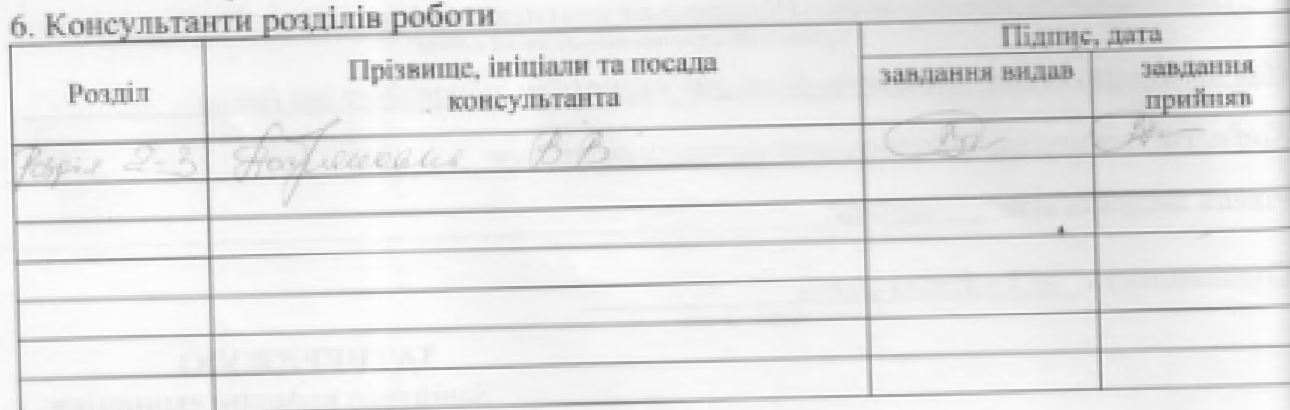 6. Консультанти розділів роботи
Розділ
Прізвище, ініціали та посада
консультанта
Підпис, дата
завдання видав
завдання
прийняв
Розділ 2-3 В В